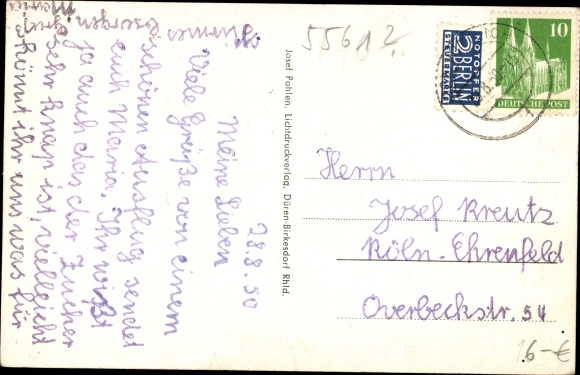 28.8.50
Meine Lieben
Viele Grüße von einem
schönen Ausflug sendet
euch Maria. Ihr wißt
ja auch das der Zucker
sehr knap ist, vielleicht
könnt ihr uns was für
55612
Josef Pohlen, Lichtdruckverlag, Düren-Birkesdorf Rhld.
NOTOPFER
2 BERLIN
STEUERMARKE
10
DEUTSCHE POST
Herrn
Josef Kreutz
Köln-Ehrenfeld
Overbeckstr. 54
6-€